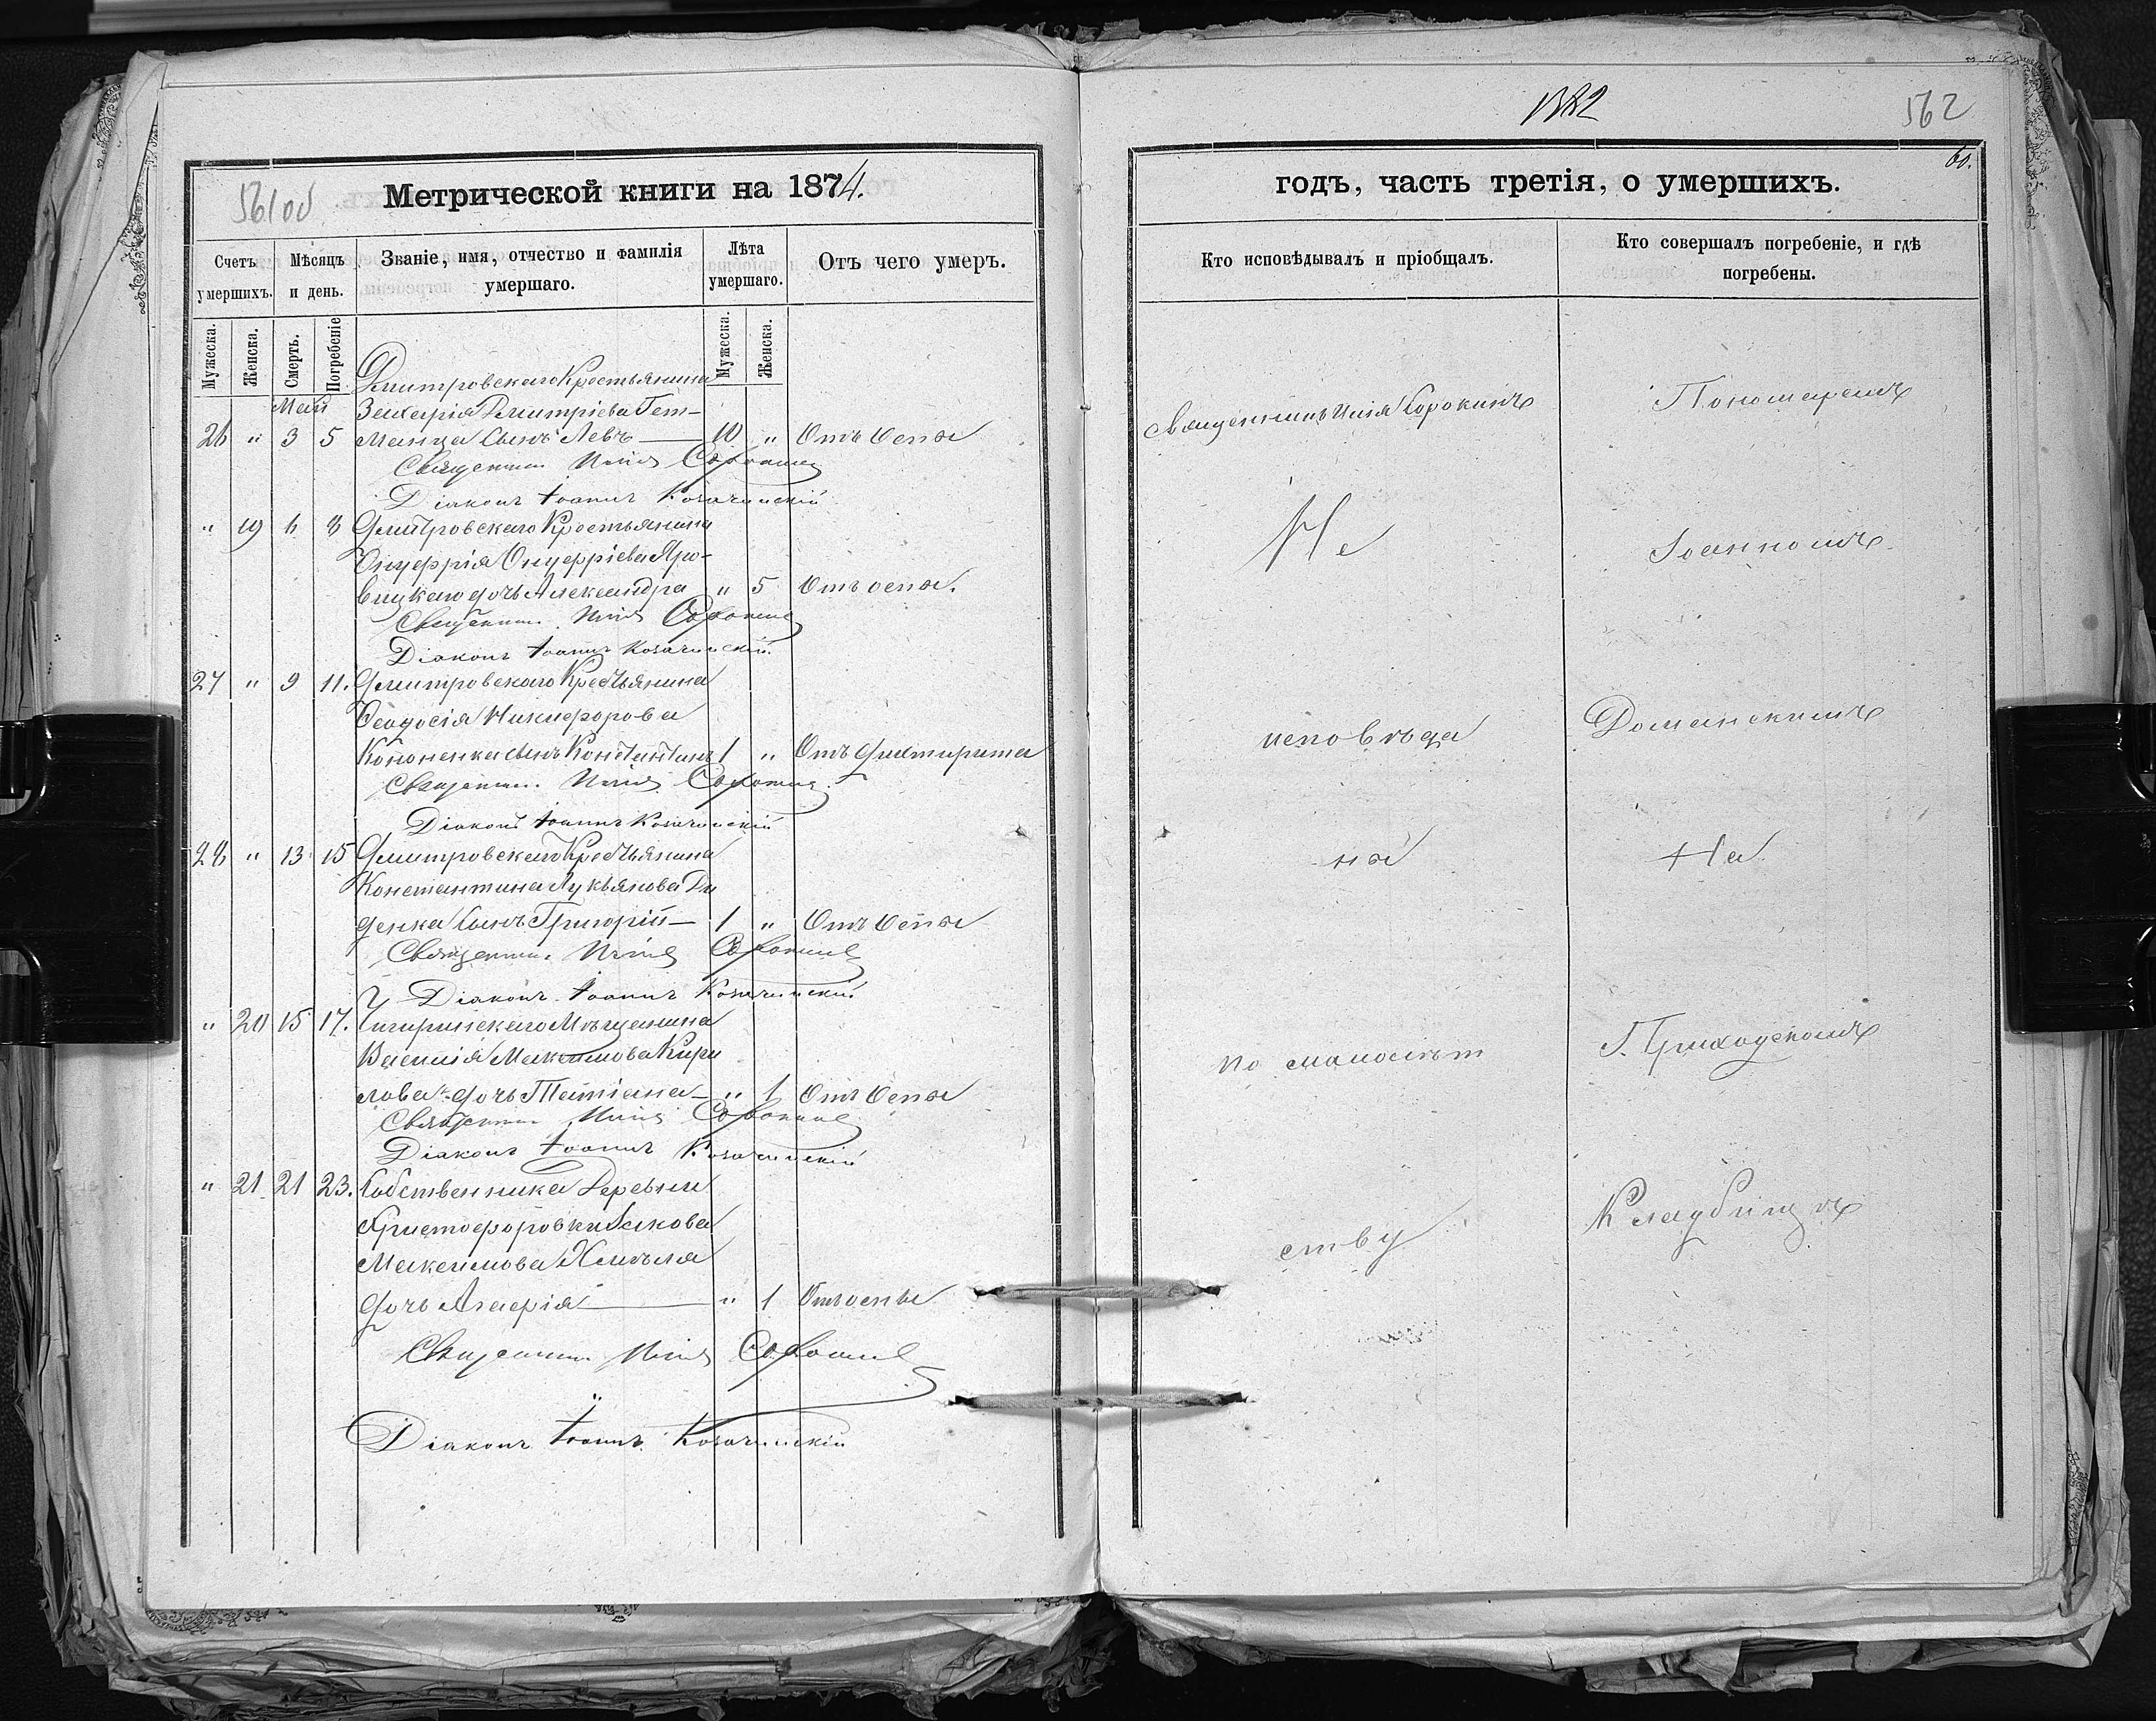 561об
Метрической книги на 1874.
Счетъ умершихъ.
Мѣсяцъ и день.
Званіе, имя, отчество и фамилія умершаго.
Лѣта умершаго.
Отъ чего умеръ.
Мужеска.
Женска.
Смерть.
Погребеніе
Мужеска.
Женска.
Дмитровскаго Крестьянина
Май
Захарія Димитріева Гет-
26 " 3 5 манца сынъ Левъ — 10 " Отъ Оспы
Священникъ Илія Сорокинъ
Діаконъ Іоаннъ Козачинскій
" 19 6 8 Дмитровскаго Крестьянина
Онуфрія Онуфріева Яро-
вицкаго дочь Александра " 5 Отъ оспы.
Священникъ Илія Сорокинъ
Діаконъ Іоаннъ Козачинскій
27 " 9 11. Дмитровскаго Крестьянина
Ѳеодосія Никифорова
Кононенка сынъ Константинъ 1 " Отъ дифтирита
Священникъ Илія Сорокинъ
Діаконъ Іоаннъ Козачинскій
28 " 13 15 Дмитровскаго Крестьянина
Константина Лукьянова Ди
денка сынъ Григорій — 1 " Отъ Оспы
Священникъ Илія Сорокинъ
Діаконъ Іоаннъ Козачинскій
" 20 15 17. Чигиринскаго Мѣщанина
Василія Максимова Кири
лова дочь Татіана — " 1 Отъ Оспы
Священникъ Илія Сорокинъ
Діаконъ Іоаннъ Козачинскій
" 21 21 23. Собственника Деревни
Христофоровки Іакова
Максимова Хмѣля
дочь Агафія — " 1 Отъ оспы
Священникъ Илія Сорокинъ
Діаконъ Іоаннъ Козачинскій
562
60.
годъ, часть третія, о умершихъ.
Кто исповѣдывалъ и пріобщалъ.
Кто совершалъ погребеніе, и гдѣ погребены.
Священникъ Илія Сорокинъ
Пономаремъ
Не
Іоанномъ
исповѣда
Доманскимъ
ны
На
по малолѣт
Приходскомъ
ству
Кладбищѣ